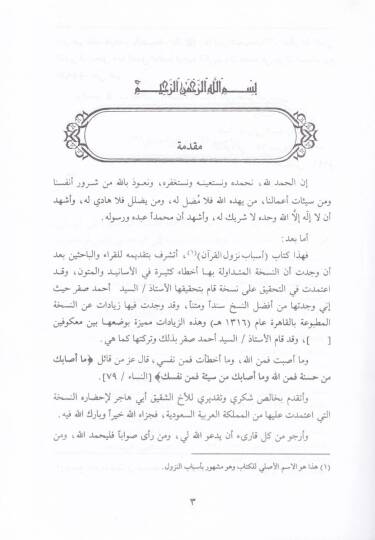 بسم الله الرحمن الرحيم
مقدمة
إن الحمد لله، نحمده ونستعينه ونستغفره، ونعوذ بالله من شرور أنفسنا
ومن سيئات أعمالنا، من يهده الله فلا مُضل له، ومن يضلل فلا هادي له، وأشهد
أن لا إله إلَّا الله وحده لا شريك له، وأشهد أن محمداً عبده ورسوله.
أما بعد:
فهذا كتاب (أسباب نزول القرآن)(١)، أتشرف بتقديمه للقراء والباحثين بعد
أن وجدت أن النسخة المتداولة بها أخطاء كثيرة في الأسانيد والمتون، وقد
اعتمدت في التحقيق على نسخة قام بتحقيقها الأستاذ / السيد أحمد صقر حيث
إني وجدتها من أفضل النسخ سنداً ومتناً، وقد وجدت فيها زيادات عن النسخة
المطبوعة بالقاهرة عام (١٣١٦ هـ) وهذه الزيادات مميزة بوضعها بين معكوفين
[ ]، وقد قام الأستاذ / السيد أحمد صقر بذلك وتركتها كما هي.
وما أصبت فمن الله، وما أخطأت فمن نفسي، قال عز من قائل ﴿ما أصابك
من حسنة فمن الله وما أصابك من سيئة فمن نفسك﴾ [النساء / ٧٩].
وأتقدم بخالص شكري وتقديري للأخ الشقيق أبي هاجر لإحضاره النسخة
التي اعتمدت عليها من المملكة العربية السعودية، فجزاه الله خيراً وبارك الله فيه.
وأرجو من كل قارىء أن يدعو الله لي، ومن رأى صواباً فليحمد الله، ومن
(١) هذا هو الاسم الأصلي للكتاب وهو مشهور بأسباب النزول.
٣